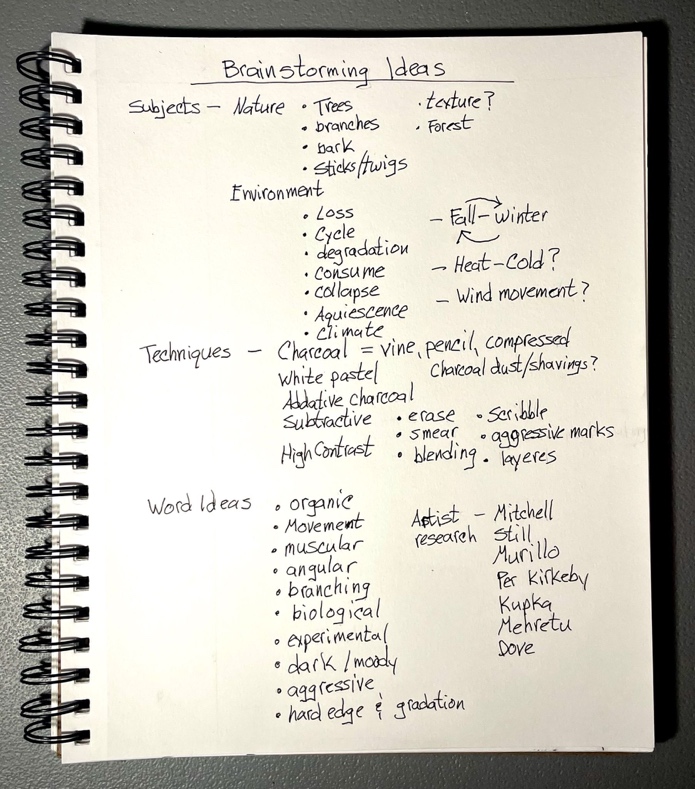 Brainstorming Ideas
Subjects – Nature • Trees • texture?
• branches • Forest
• bark
• Sticks/twigs
Environment
• Loss – Fall – winter
• Cycle
• degradation
• consume – Heat – Cold?
• collapse – Wind movement?
• Aquiescence
• Climate
Techniques – Charcoal = vine, pencil, compressed
White pastel Charcoal dust/shavings?
Addative charcoal
Subtractive • erase • Scribble
• smear • aggressive marks
High Contrast • blending • layeres
Word Ideas • organic
• Movement Artist – Mitchell
• muscular research Still
• angular Murillo
• branching Per Kirkeby
• biological Kupka
• experimental Mehretu
• dark/moody Dove
• aggressive
• hard edge & gradation